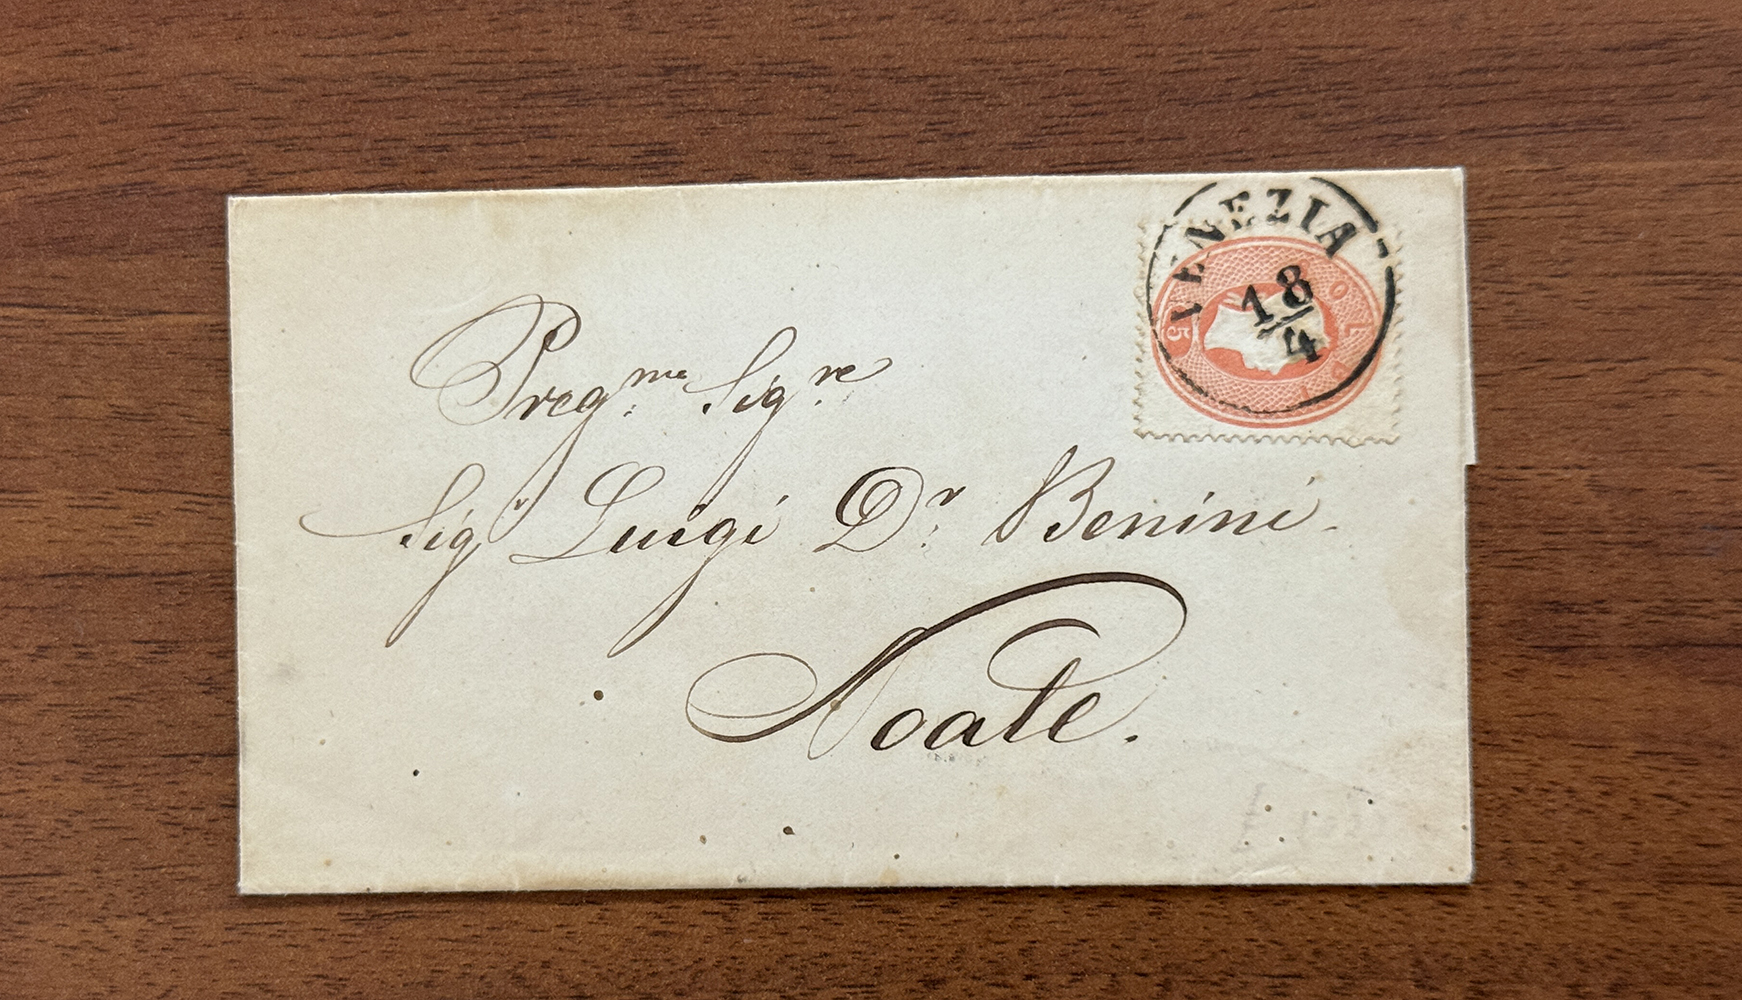 VENEZIA
18/4
5 SOLDI
Preg.me Sig.re
Sigr Luigi D.r Benini
Noale.